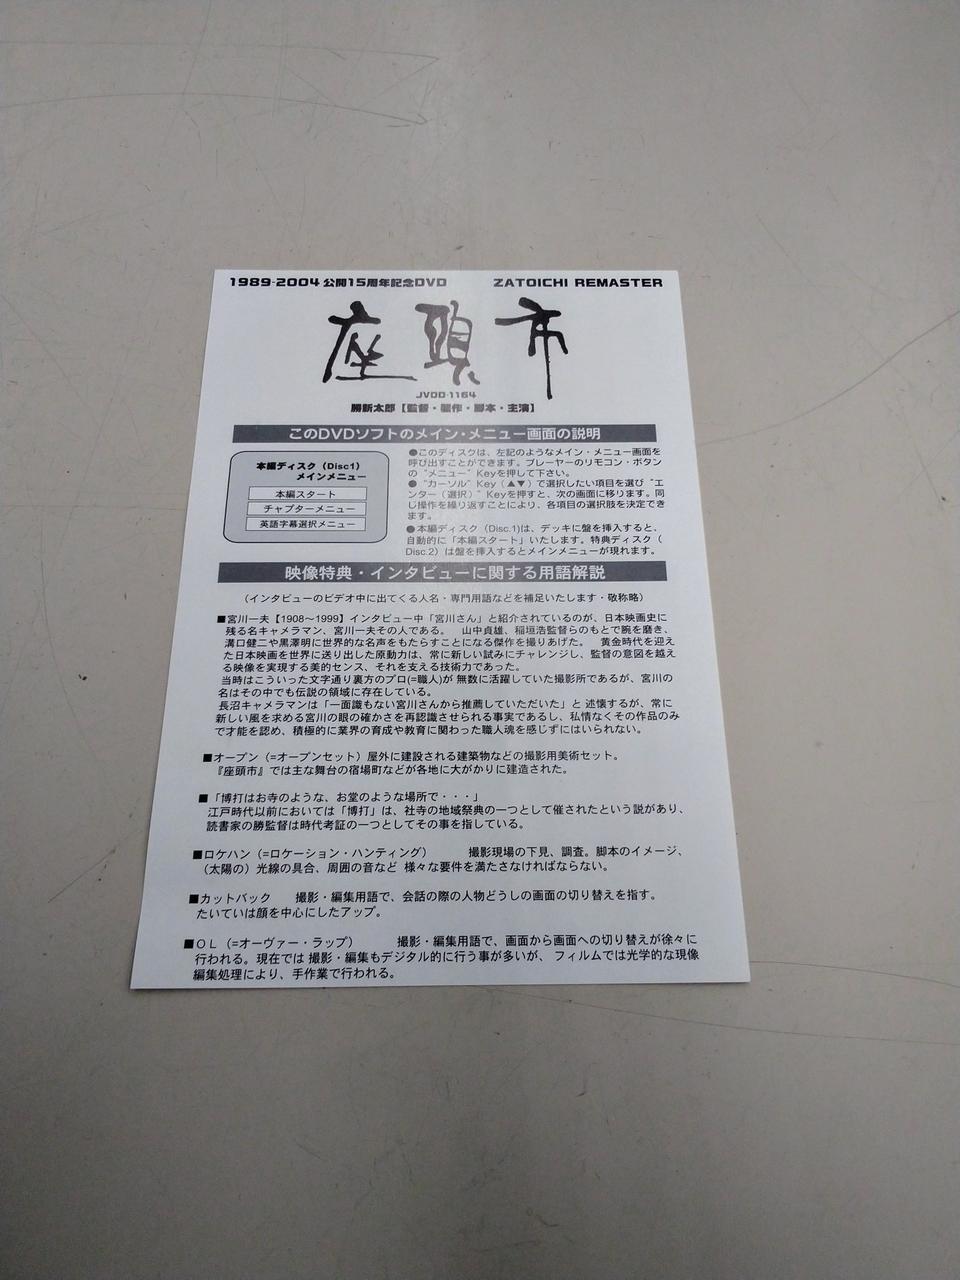 1989-2004 公開15周年記念DVD ZATOICHI REMASTER
座頭市
JVDD-1164
勝新太郎【監督・製作・脚本・主演】
このDVDソフトのメイン・メニュー画面の説明
本編ディスク（Disc1）
メインメニュー
本編スタート
チャプターメニュー
英語字幕選択メニュー
●このディスクは、左記のようなメイン・メニュー画面を
呼び出すことができます。プレーヤーのリモコン・ボタン
の“メニュー”Keyを押して下さい。
●“カーソル”Key（▲▼）で選択したい項目を選び“エ
ンター（選択）”Keyを押すと、次の画面に移ります。同
じ操作を繰り返すことにより、各項目の選択肢を決定でき
ます。
●本編ディスク（Disc.1)は、デッキに盤を挿入すると、
自動的に「本編スタート」いたします。特典ディスク（
Disc.2）は盤を挿入するとメインメニューが現れます。
映像特典・インタビューに関する用語解説
（インタビューのビデオ中に出てくる人名・専門用語などを補足いたします・敬称略）
■宮川一夫【1908〜1999】インタビュー中「宮川さん」と紹介されているのが、日本映画史に
残る名キャメラマン、宮川一夫その人である。 山中貞雄、稲垣浩監督らのもとで腕を磨き、
溝口健二や黒澤明に世界的な名声をもたらすことになる傑作を撮りあげた。 黄金時代を迎え
た日本映画を世界に送り出した原動力は、常に新しい試みにチャレンジし、監督の意図を越え
る映像を実現する美的センス、それを支える技術力であった。
当時はこういった文字通り裏方のプロ(=職人)が 無数に活躍していた撮影所であるが、宮川の
名はその中でも伝説の領域に存在している。
長沼キャメラマンは「一面識もない宮川さんから推薦していただいた」と 述懐するが、常に
新しい風を求める宮川の眼の確かさを再認識させられる事実であるし、私情なくその作品のみ
で才能を認め、積極的に業界の育成や教育に関わった職人魂を感じずにはいられない。
■オープン（=オープンセット）屋外に建設される建築物などの撮影用美術セット。
『座頭市』では主な舞台の宿場町などが各地に大がかりに建造された。
■「博打はお寺のような、お堂のような場所で・・・」
江戸時代以前においては「博打」は、社寺の地域祭典の一つとして催されたという説があり、
読書家の勝監督は時代考証の一つとしてその事を指している。
■ロケハン（=ロケーション・ハンティング） 撮影現場の下見、調査。脚本のイメージ、
（太陽の）光線の具合、周囲の音など 様々な要件を満たさなければならない。
■カットバック 撮影・編集用語で、会話の際の人物どうしの画面の切り替えを指す。
たいていは顔を中心にしたアップ。
■ＯＬ（=オーヴァー・ラップ） 撮影・編集用語で、画面から画面への切り替えが徐々に
行われる。現在では 撮影・編集もデジタル的に行う事が多いが、 フィルムでは光学的な現像
編集処理により、手作業で行われる。